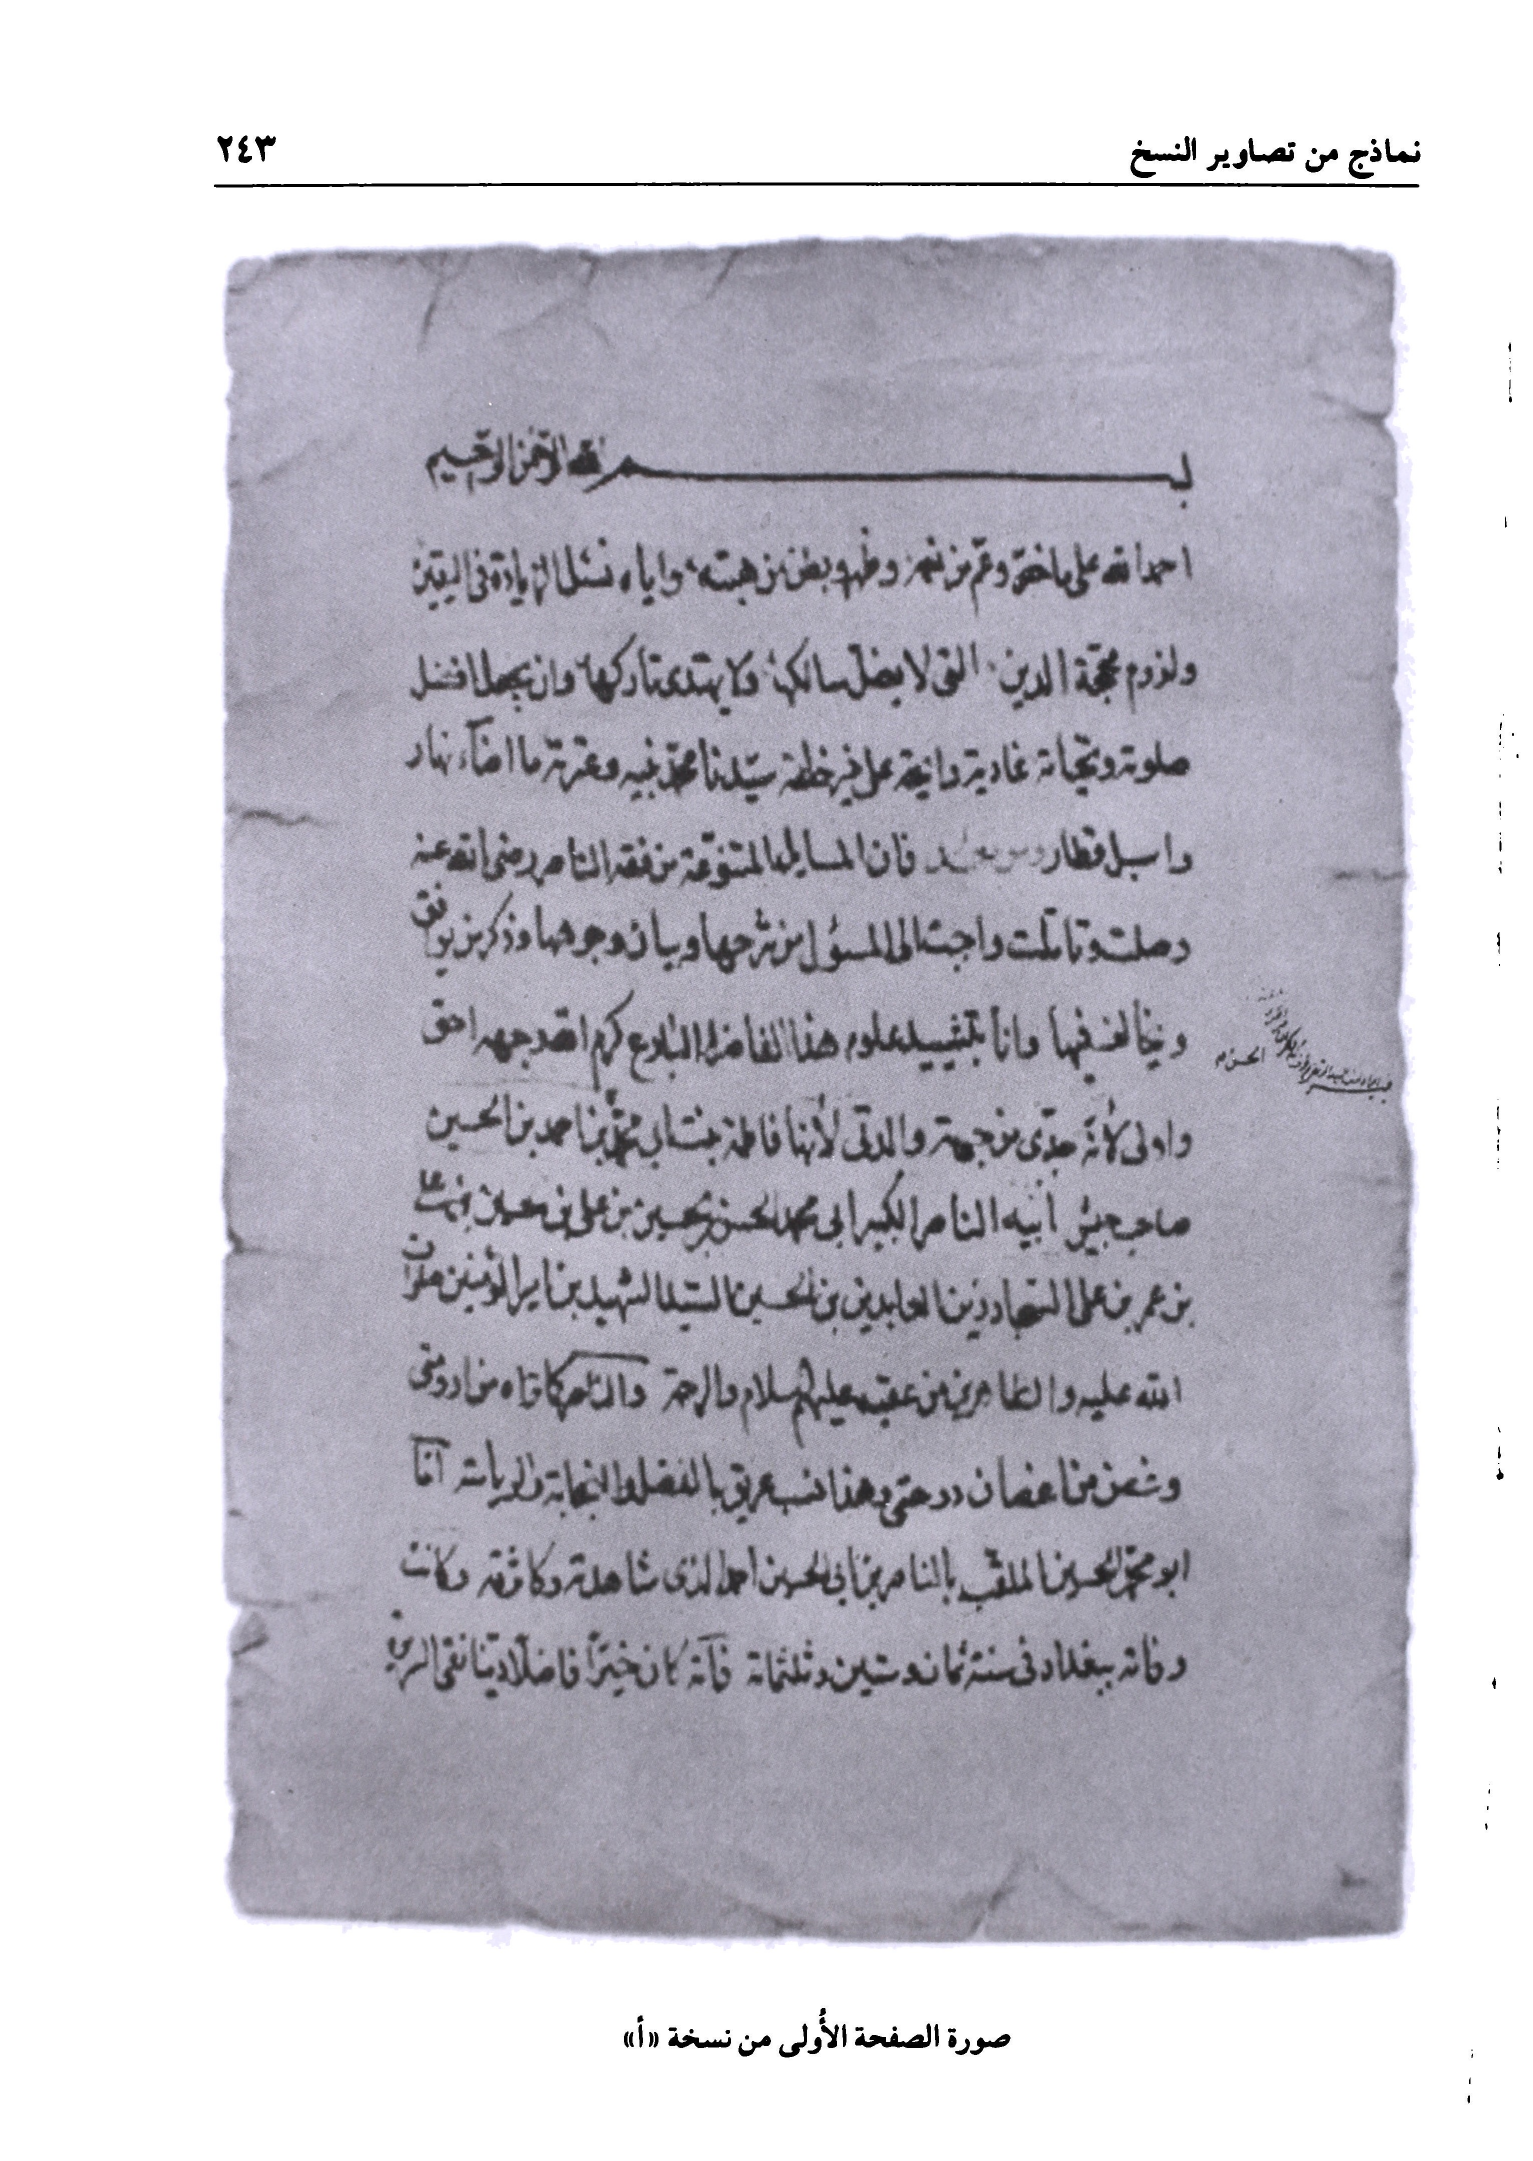 نماذج من تصاوير النسخ ٢٤٣
بسم الله الرحمن الرحيم
احمد الله على ما خص وعم من نعمه وظهر وبطن من هبته واياه نسئل الزيادة في اليقين
ولزوم محجة الدين التي لا يضل سالكها ولا يهتدى تاركها وان يجعل افضل
صلوته وتحياته غادية ورايحة على خير خلقه سيدنا محمد نبيه وعترته ما اضاء نهار
واسبل قطار وبعد فان المسايل المنتزعة من فقه الناصر رضى الله عنه
وصلت وتاملت واجبت الى المسؤل من شرحها وبيان وجوهها وذكر من يوافق
ويخالف فيها وانا بتشييد علوم هذا الفاضل البارع كرم الله وجهه احق
واولى لأنه جدى من جهة والدتى لأنها فاطمة بنت ابى محمد بن احمد بن الحسين
صاحب جيش أبيه الناصر الكبير ابي محمد الحسن بن الحسين بن على بن
بن عمر بن على السجاد زين العابدين بن الحسين السبط الشهيد بن امير المؤمنين صلوات
الله عليه والطاهرين من عقبه عليهم السلام والرحمة والناصر كما تراه من ارومتى
وغصن من اغصان دوحتى وهذا نسب عريق بالفضل والنجابة والرياسة اما
ابو محمد الحسين الملقب بالناصر بن ابي الحسين احمد الذى شاهدته وكاثرته وكانت
وفاته ببغداد في سنة ثمان وستين وثلثمائة فانه كان خيرًا فاضلًا دينا نقى السريرة
الحسن م
صورة الصفحة الأُولى من نسخة «أ»